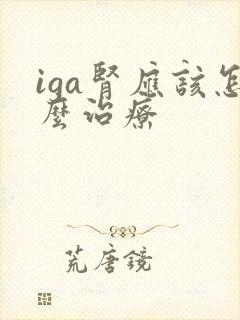 iga腎應該怎
麼治療
荒唐鏡